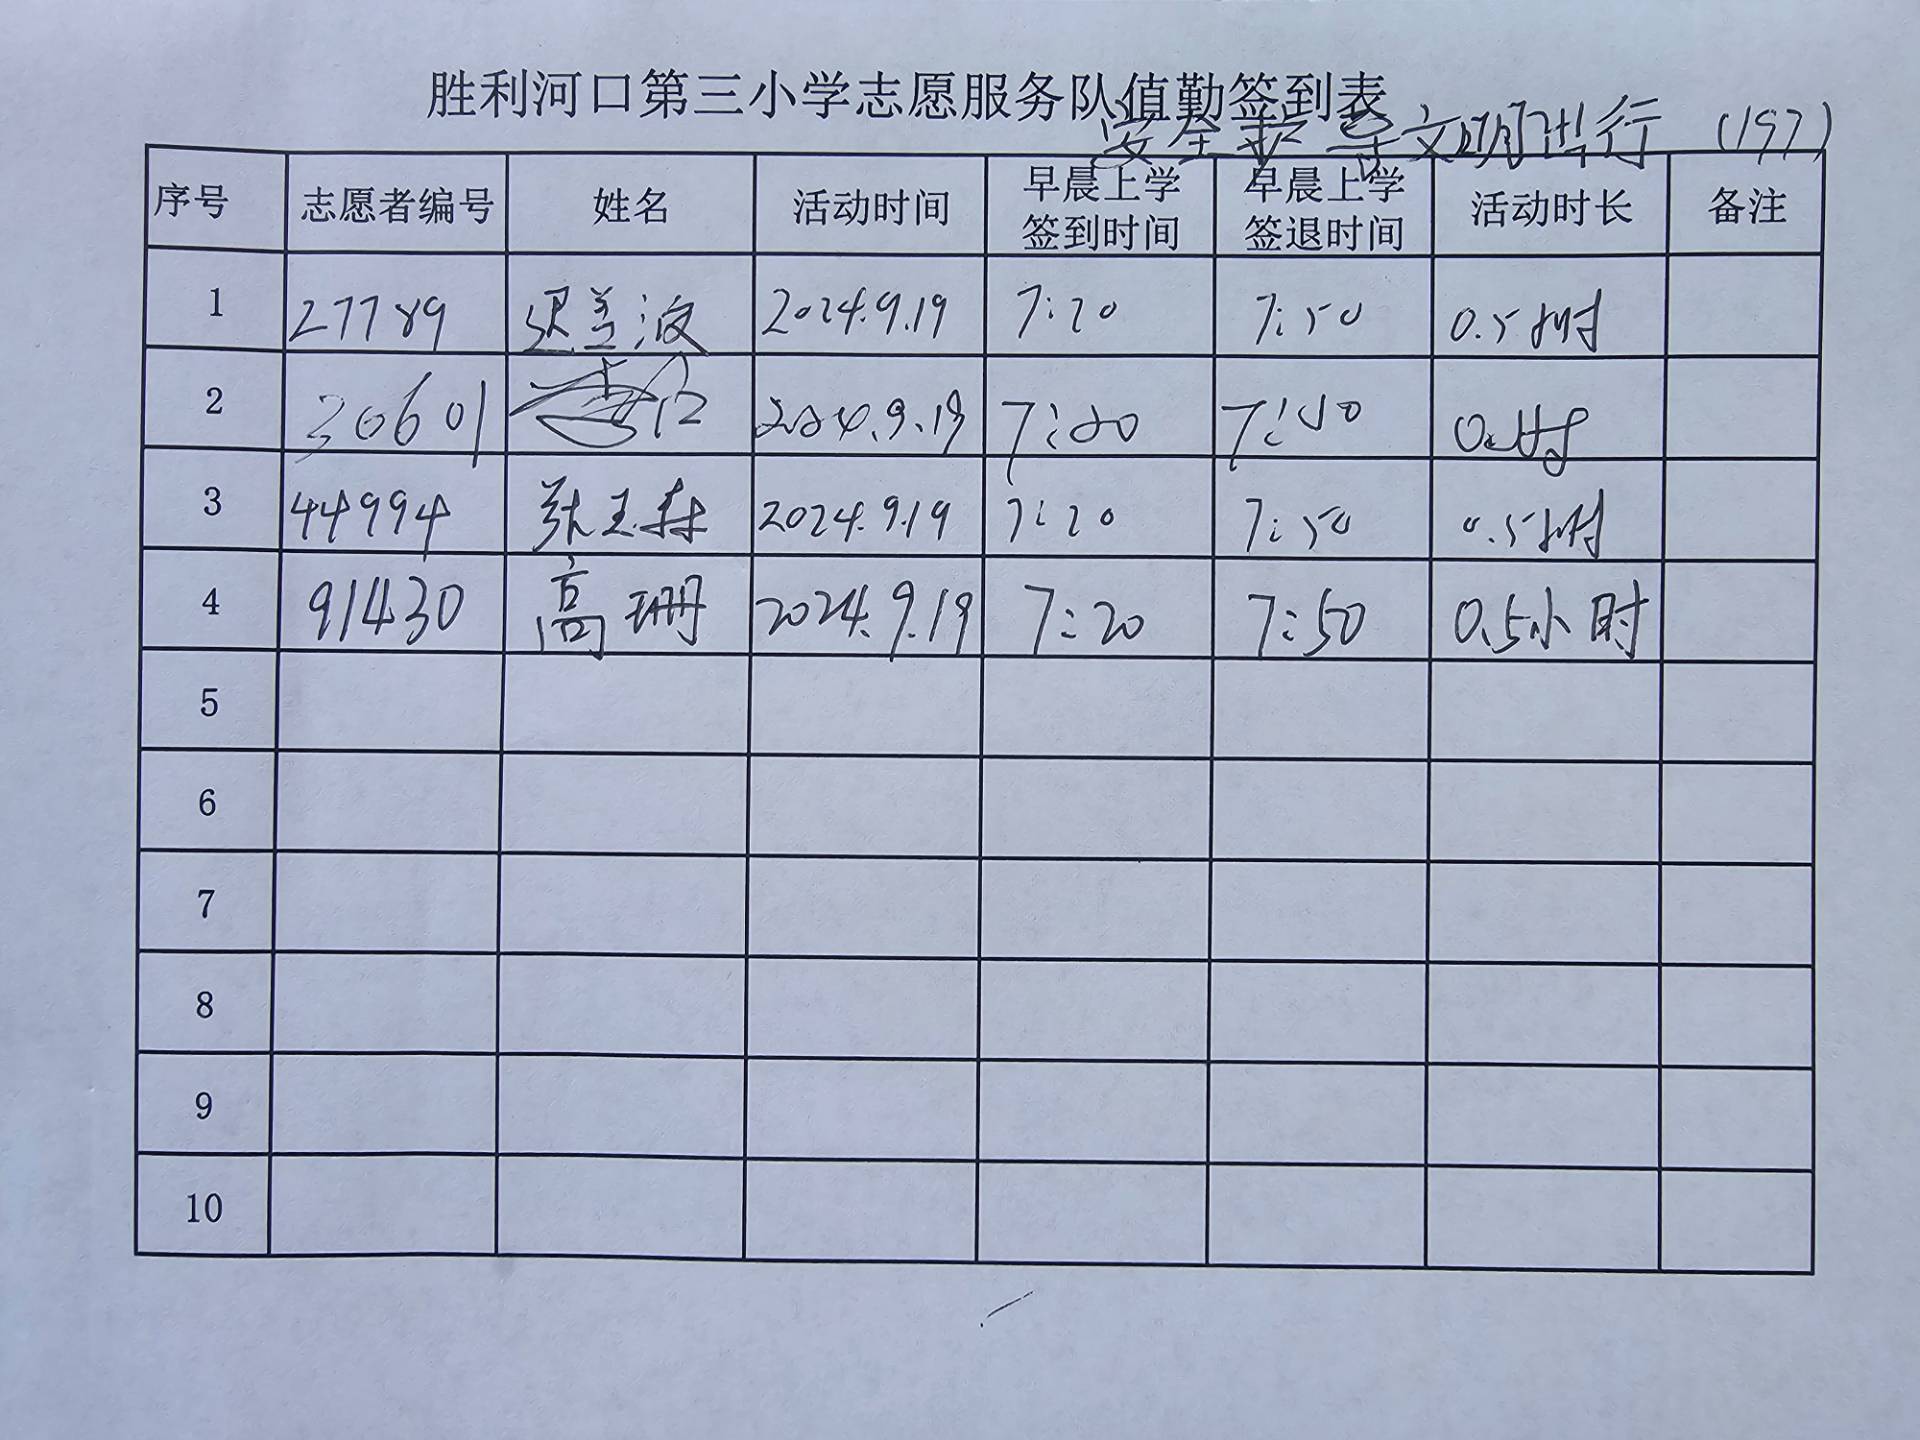 胜利河口第三小学志愿服务队值勤签到表
安全护导文明进行 (197)
序号 志愿者编号 姓名 活动时间 早晨上学签到时间 早晨上学签退时间 活动时长 备注
1 27789 2024.9.19 7:20 7:50 0.5小时
2 30601 2024.9.19 7:20 7:50
3 44994 张玉森 2024.9.19 7:20 7:50 0.5小时
4 91430 高珊 2024.9.19 7:20 7:50 0.5小时
5
6
7
8
9
10